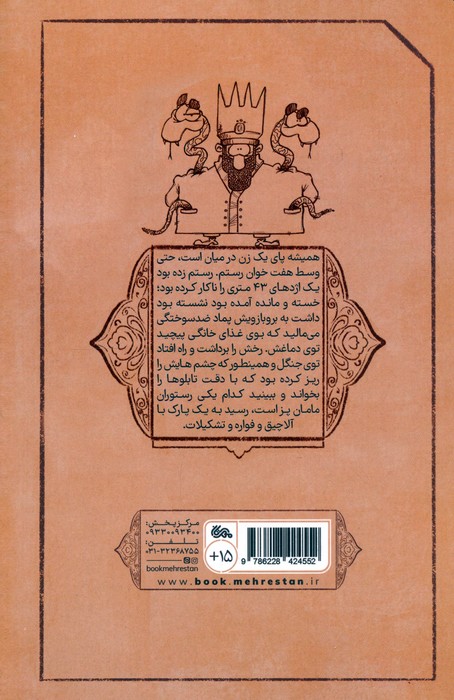 همیشه پای یک زن در میان است، حتی
وسط هفت خوان رستم. رستم زده بود
یک اژدهای ۴۳ متری را ناکار کرده بود؛
خسته و مانده آمده بود نشسته بود
داشت به بروبازویش پماد ضدسوختگی
می‌مالید که بوی غذای خانگی پیچید
توی دماغش. رخش را برداشت و راه افتاد
توی جنگل و همینطور که چشم هایش را
ریز کرده بود که با دقت تابلوها را
بخواند و ببینید کدام یکی رستوران
مامان پز است، رسید به یک پارک با
آلاچیق و فواره و تشکیلات.
مرکز پخش:
۰۹۳۳۰۰۹۳۴۰۰
تلفن:
۰۳۱-۳۲۳۶۸۷۵۵
bookmehrestan
+۱۵
9 786228 424552
www.book.mehrestan.ir